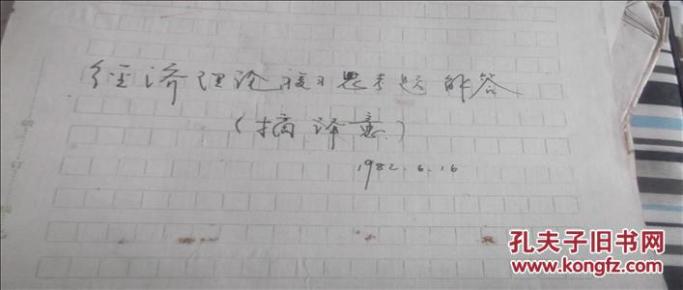 经济理论复习思考题解答
(摘译意)
1982.6.16
孔夫子旧书网
www.kongfz.com